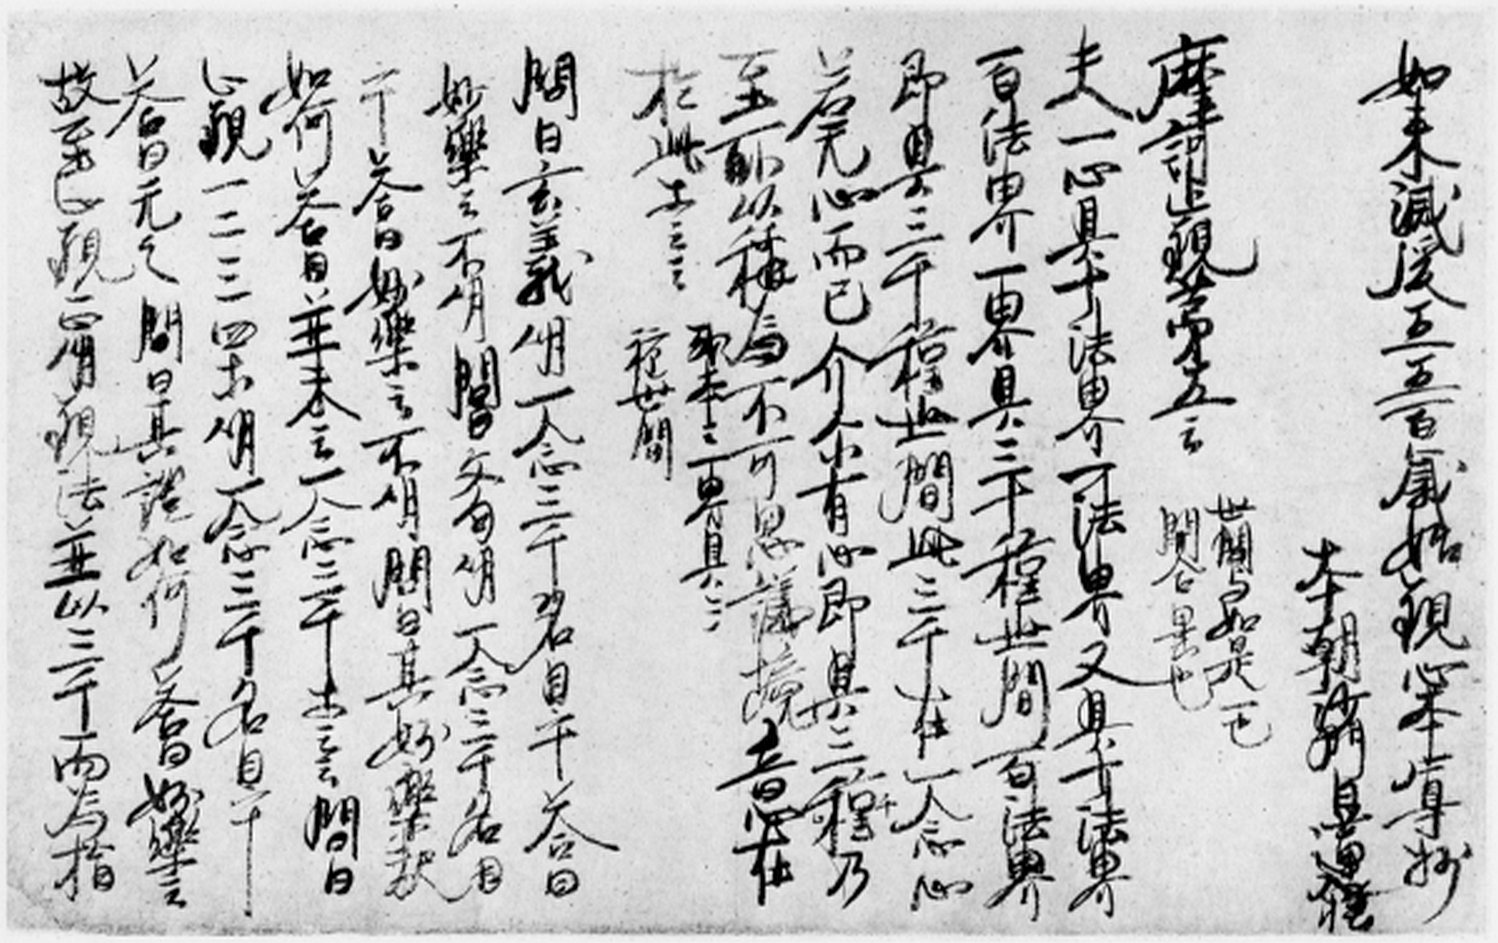 如来滅後五五百歳始観心本尊抄
本朝沙門日蓮撰
摩訶止観第五云 世間与如是一也
開合異也
夫一心具十法界一法界又具十法界
百法界一界具三十種世間百法界
即具三千種世間此三千在一念心
若无心而已介尓有心即具三千種乃
至所以称為不可思議境意在
於此等云云 或本云一界具三
種世間
問曰玄義明一念三千名目乎答曰
妙楽云不明問曰文句明一念三千名目
乎答曰妙楽云不明問曰其妙楽釈
如何答曰並未云一念三千等云云問曰
止観一二三四等明一念三千名目乎
答曰无之問曰其証如何答曰妙楽云
故至止観正明観法並以三千而為指